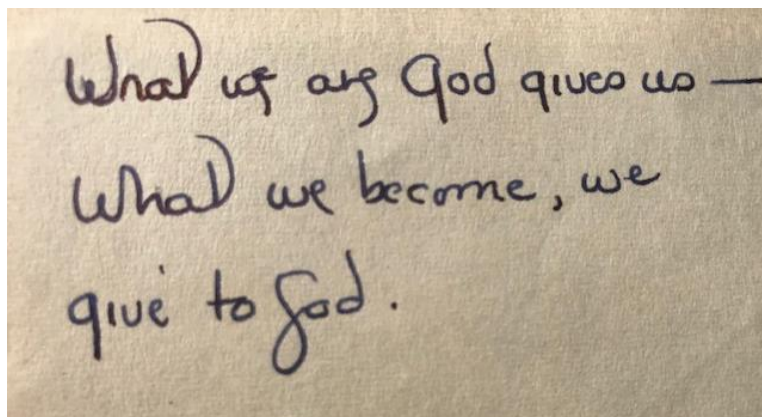 What we are God gives us —
What we become, we
give to God.